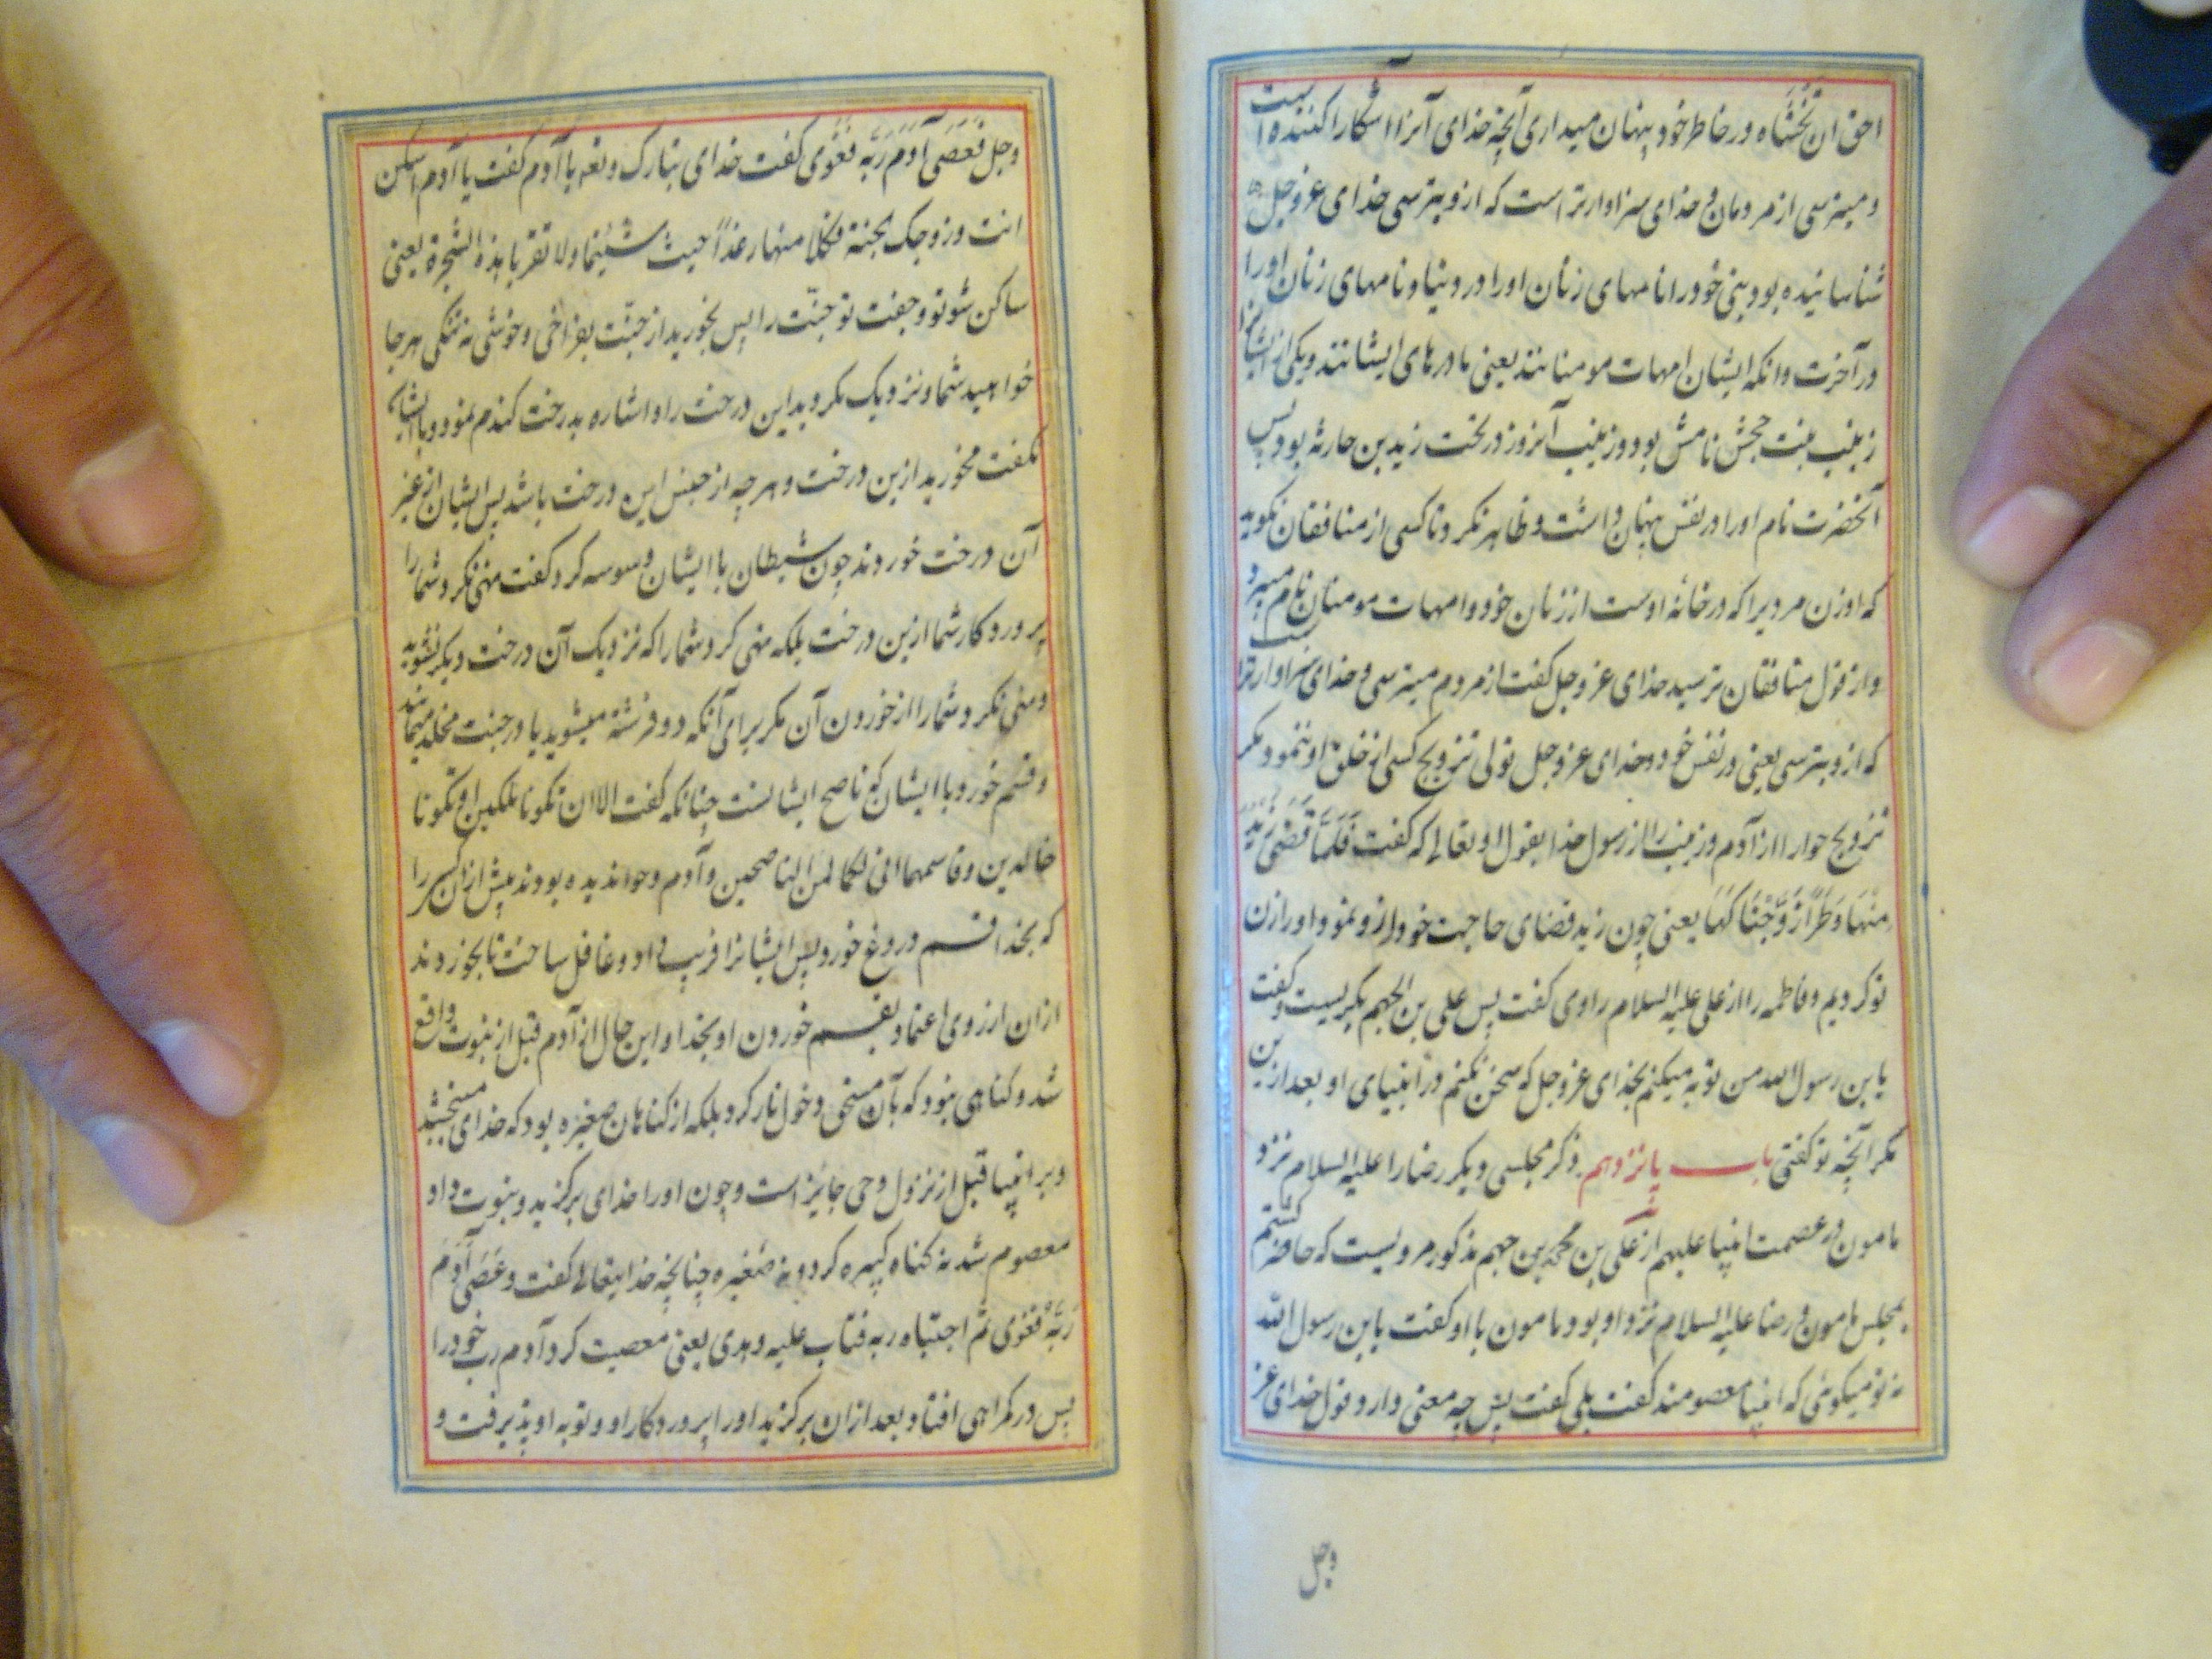 احق ان تخشاه در خاطر خود پنهان میداری آنچه خدای آنرا آشکارا کننده است
و میترسی از مردمان و خدای سزاوارتر است که ازو بترسی خدای عز و جل
شناسانیده بود بنبی خود را نامهای زنان او را در دنیا و نامهای زنان او را
در آخرت و انکه ایشان امهات مومنانند یعنی مادرهای ایشانند و یکی از ایشانرا
زینب بنت جحش نامش بود و زینب آنروز در تحت زید بن حارثه بود پس
آنحضرت نام او را در نفس پنهان داشت و ظاهر نکرد تا کسی از منافقان نکوید
که او زن مردیرا که در خانهٔ اوست از زنان خود و امهات مومنان نام میبرد
و از قول منافقان ترسید خدای عز و جل کفت از مردم میترسی و خدای سزاوارتر است
که ازو بترسی یعنی در نفس خود و خدای عز و جل تولی تزویج کسی از خلق او ننمود مکر
تزویج حوا را از آدم و زینب را از رسول خدا بقول او تعالی که کفت فَلَمَّا قَضَی زَیْدٌ
مِنْهَا وَطَرًا زَوَّجْنَاکَهَا یعنی چون زید قضای حاجت خود ازو نمود او را زن
تو کردیم و فاطمه را از علی علیه السلام راوی کفت پس علی بن الجهم بکریست و کفت
یا بن رسول الله من توبه میکنم بخدای عز و جل که سخن نکنم در انبیای او بعد ازین
مکر آنچه تو کفتی باب پانزدهم ذکر مجلسی دیکر رضا را علیه السلام نزد
مامون در عصمت انبیا علیهم از علی بن محمد بن جهم مذکور مرویست که حاضر کشتم
بمجلس مامون و رضا علیه السلام نزد او بود مامون با او کفت یا بن رسول الله
نه تو میکوئی که انبیا معصومند کفت بلی کفت پس چه معنی دارد قول خدای عز
وجل
وجل فَعَصَی آدَمُ رَبَّهُ فَغَوَی کفت خدای تبارک و تعه با آدم کفت یا آدم اسکن
انت و زوجک الجنة فکلا منها رغدًا حیث شئتما و لا تقربا هذه الشجرة یعنی
ساکن شو تو و جفت تو جنّت را پس بخورید از جنّت بفراخی و خوشی نه تنکی هر جا
خواهید شما و نزدیک مکردید این درخت را و اشاره بدرخت کندم نمود و با ایشان
نکفت مخورید ازین درخت و هر چه از جنس این درخت باشد پس ایشان از غیر
آن درخت خوردند چون شیطان با ایشان وسوسه کرد کفت منهی نکرد شما را
پروردکار شما ازین درخت بلکه منهی کرد شما را که نزدیک آن درخت دیکر نشوید
و منهی نکرد شما را از خوردن آن مکر برای آنکه دو فرشته میشوید یا در جنت مخلد میمانید
و قسم خورد با ایشان که ناصح ایشانست چنانکه کفت الا ان تکونا ملکین او تکونا
خالدین و قاسمهما انی لکما لمن الناصحین و آدم و حوا ندیده بودند پیش ازان کسی را
که بخدا قسم دروغ خورد پس ایشانرا فریب داد و غافل ساخت تا بخوردند
ازان از روی اعتماد بقسم خوردن او بخدا و این حال از آدم قبل از نبوت واقع
شد و کناهی نبود که بآن مستحق دخول نار کردد بلکه از کناهان صغیره بود که خدای میبخشد
و بر انبیا قبل از نزول وحی جایز است و چون او را خدای برکزید و نبوت داد
معصوم شد نه کناه کبیره کردد و نه صغیره چنانچه خدایتعالی کفت وَ عَصَی آدَمُ
رَبَّهُ فَغَوَی ثم اجتباه ربه فتاب علیه و هدی یعنی معصیت کرد آدم رب خود را
پس در کمراهی افتاد بعد ازان برکزید او را پروردکار او و توبه او پذیرفت و